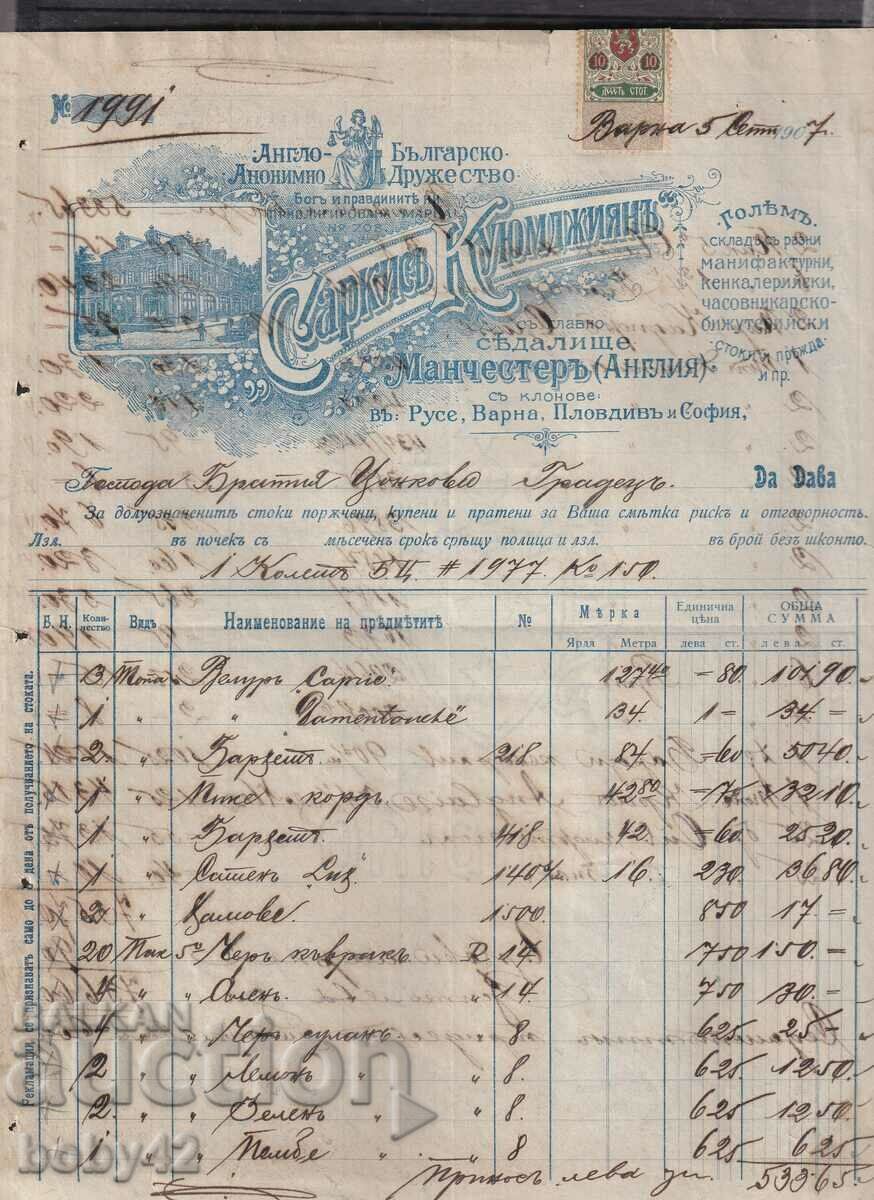 № 1991
10 10
ДЕСЕТЬ СТОТ.
Варна 5 Септ. 1907.
Англо- Българско-
Анонимно Дружество
Богъ и правдините ни
№ 708
„Саркисъ Куюмджиянъ“
Големъ
складъ съ разни
манифактурни,
кенкалерийски,
часовникарско-
бижутерийски
стоки и прежда
и пр.
съ главно
сѣдалище
Манчестеръ (Англия)
съ клонове:
въ: Русе, Варна, Пловдивъ и София,
Господа Братия Цонкови Градецъ. Да Дава
За долуозначенитѣ стоки порѫчени, купени и пратени за Ваша смѣтка рискъ и отговорность.
Лзл. въ почек съ мѣсеченъ срокъ срѣщу полица и лзл. въ брой безъ шконто.
1 Колетъ Б.Ц. # 1977. Ко 150.
Б. Н. Количество Видъ Наименование на прѣдмѣтитѣ № Мѣрка Единична цѣна ОБЩА СУММА
Ярда Метра лева ст. лева ст.
3 Топа Велуръ Сарже 127 40 = 80. 101 90.
1 „ „ 34. 1 = 34. =
2. „ Барзетъ. 218 84 = 60 50 40.
1 „ Мике кордъ 42 80 = 75 32 10.
1 „ Барзетъ. 418 42. = 60. 25 20.
1 „ Сатенъ Liz 1407 16. 2 30. 36 80.
2 „ 1500. 8 50 17. =
20 Пак 50 Черъ R 14 7 50 150. =
4 „ „ Аленъ. „ 14 7 50 30. =
4 „ „ Черъ суланъ „ 8 6 25 25 =
2 „ „ Лемонъ „ „ 8. 6 25 12 50.
2. „ „ Зеленъ „ „ 8. 6 25 12 50.
1 „ „ Пембе „ „ 8 6 25 6 25
Приносъ лева 533 65.
Рекламации се признаватъ само до 8 дена отъ получванието на стоката.
BALKAN
auction
beby42